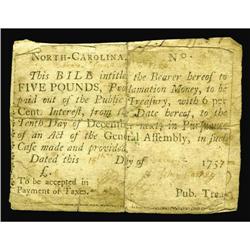 NORTH-CAROLINA. No.
This BILL intitles the Bearer hereof to
FIVE POUNDS, Proclamation Money, to be
paid out of the Public Treasury, with 6 per
Cent. Interest, from the Date hereof, to the
Tenth Day of December next; in Pursuance
of an Act of the General Assembly, in such
Case made and provided.
Dated this Day of 1757
£.
To be accepted in
Payment of Taxes. Pub. Trea